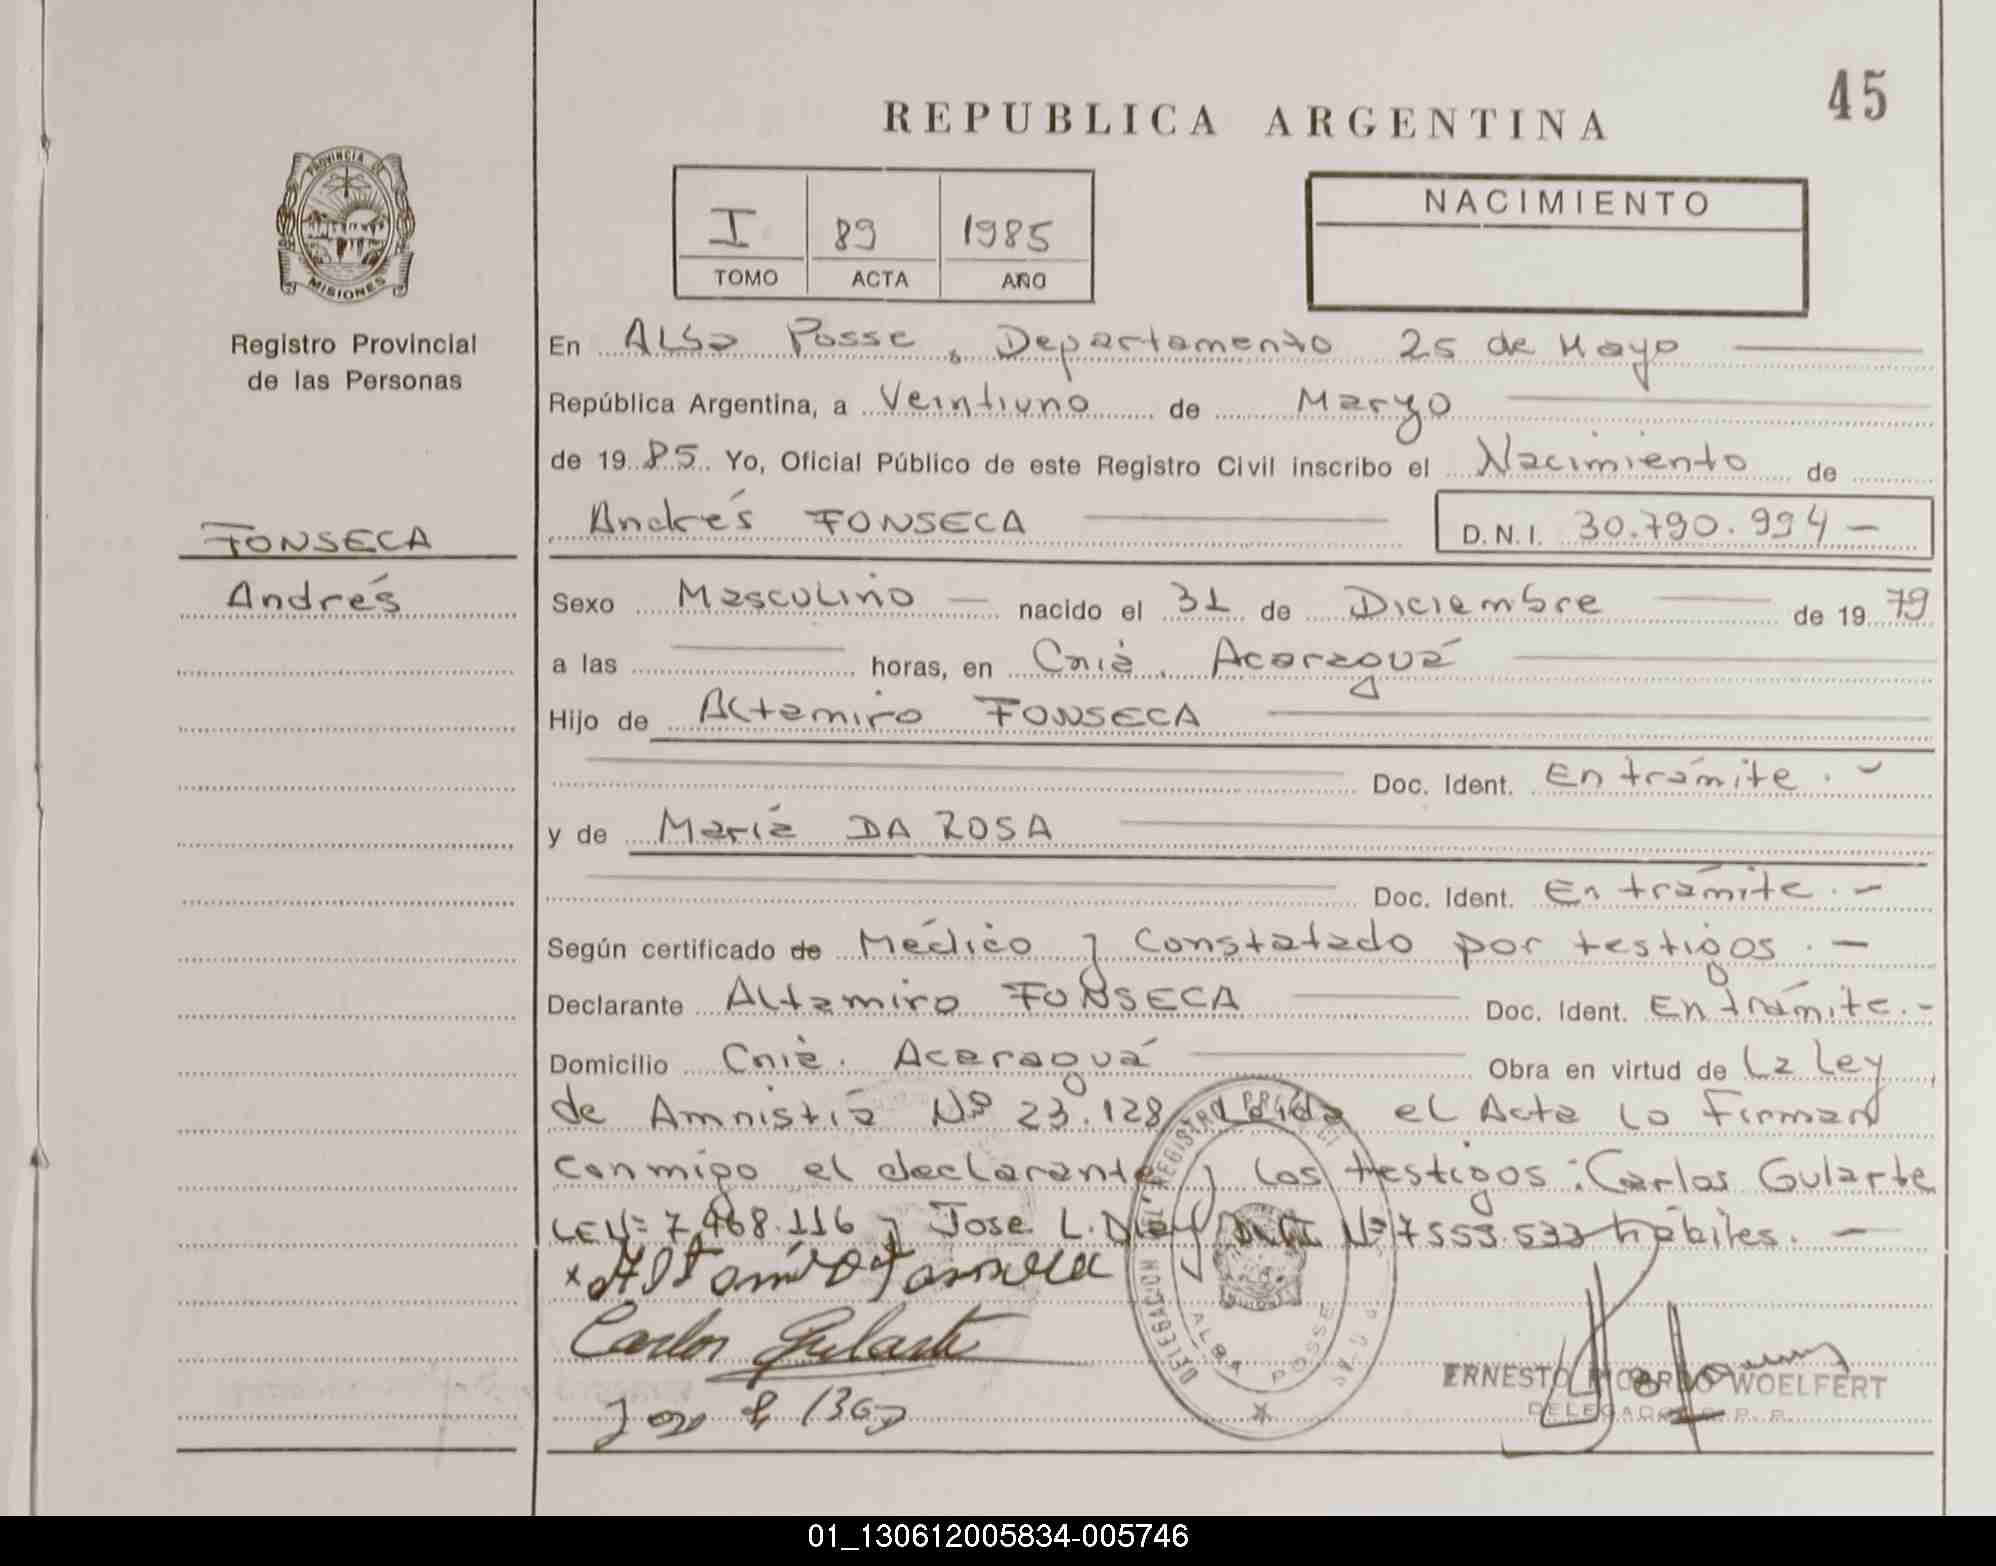 45
REPUBLICA ARGENTINA
PROVINCIA DE
MISIONES
I 89 1985
TOMO ACTA AÑO
NACIMIENTO
Registro Provincial
de las Personas
En Alba Posse, Departamento 25 de Mayo
República Argentina, a Veintiuno de Marzo
de 1985. Yo, Oficial Público de este Registro Civil inscribo el Nacimiento de
FONSECA
Andrés
Andrés FONSECA D.N.I. 30.790.994 —
Sexo Masculino — nacido el 31 de Diciembre de 1979
a las horas, en Cnia. Acaraguá
Hijo de Altamiro FONSECA
Doc. Ident. En trámite. -
y de María DA ROSA
Doc. Ident. En trámite. -
Según certificado de Médico y Constatado por testigos. —
Declarante Altamiro FONSECA Doc. Ident. En trámite. -
Domicilio Cnia. Acaraguá Obra en virtud de La Ley
de Amnistía Nº 23.128 Leída el Acta lo Firman
conmigo el declarante y los testigos: Carlos Gularte
LE Nº 7.468.116 y Jose L. Nº 7553.533 hábiles. —
Altamiro Fonseca
Carlos Gularte
Jose
ALBA POSSE
ERNESTO RICARDO WOELFERT
DELEGADO R. P. P.
01_130612005834-005746